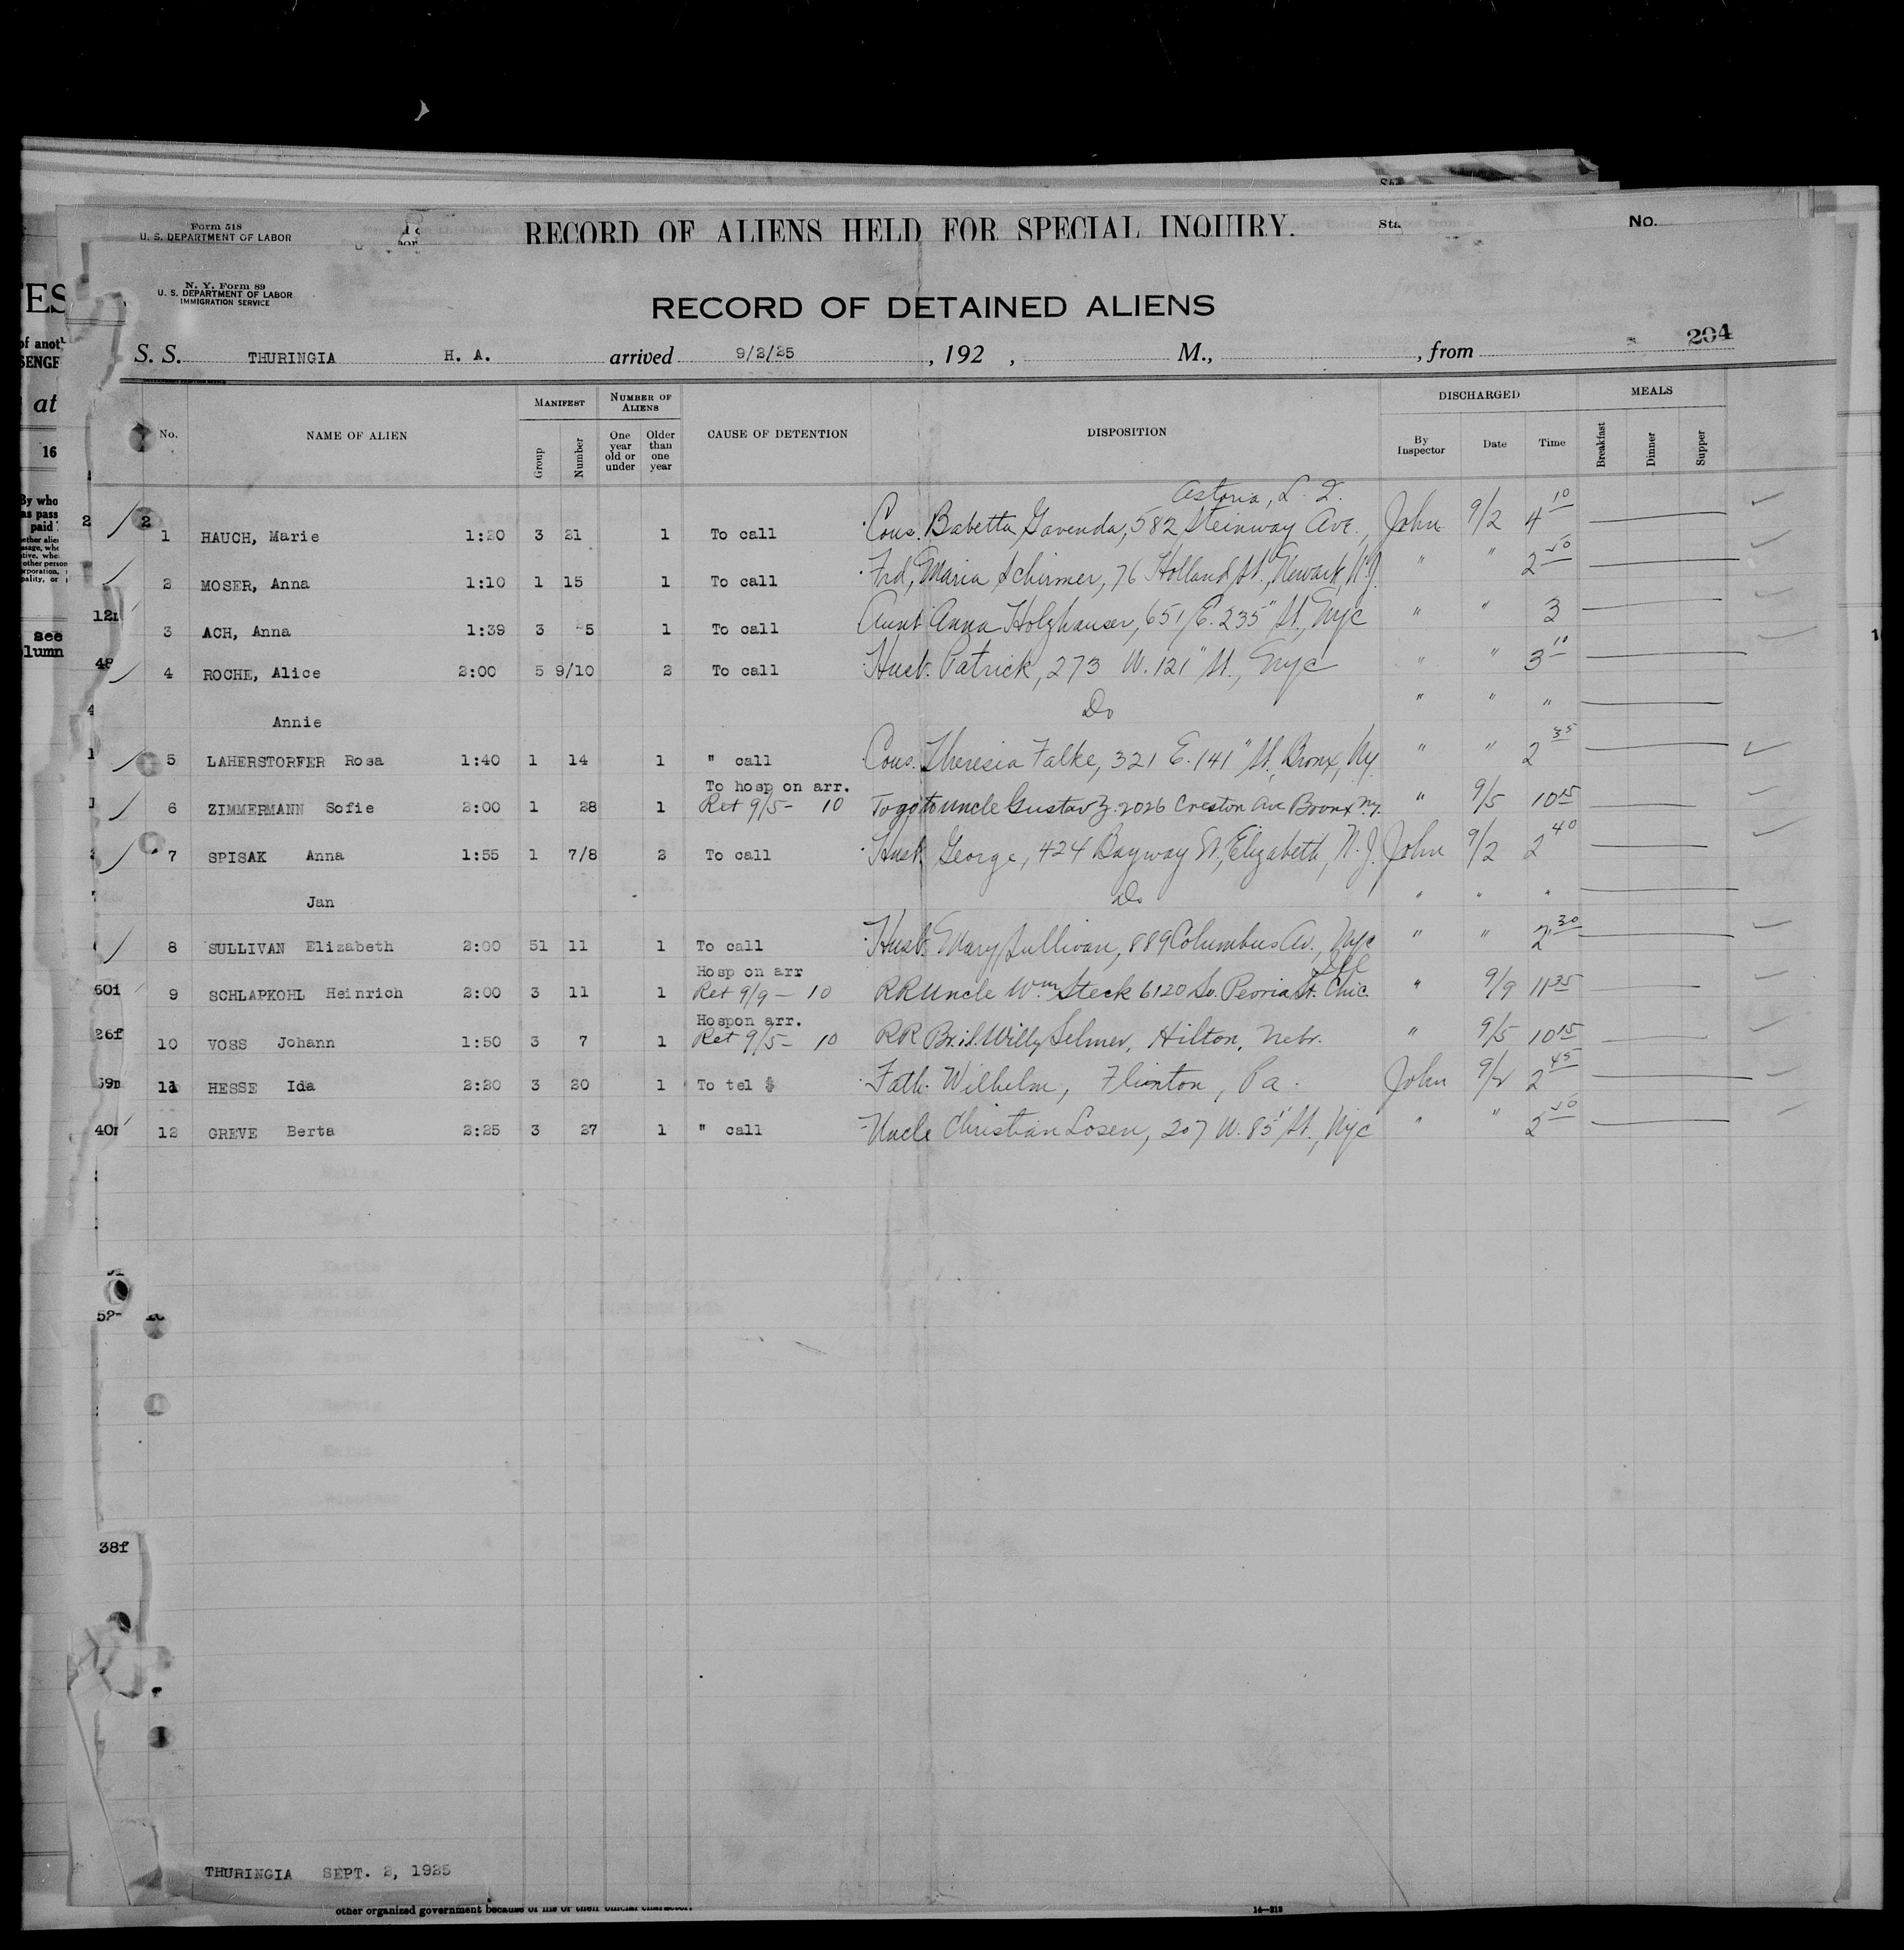 Form 518
U. S. DEPARTMENT OF LABOR
RECORD OF ALIENS HELD FOR SPECIAL INQUIRY.
Sta
No.
N. Y. Form 89
U. S. DEPARTMENT OF LABOR
IMMIGRATION SERVICE
RECORD OF DETAINED ALIENS
204
S. S. THURINGIA H. A. arrived 9/2/25, 192 , M., , from
No. NAME OF ALIEN MANIFEST Group Number NUMBER OF ALIENS One year old or under Older than one year CAUSE OF DETENTION DISPOSITION DISCHARGED By Inspector Date Time MEALS Breakfast Dinner Supper
Astoria, L. I.
1 HAUCH, Marie 1:20 3 21 1 To call Cous. Babetta Gavenda, 582 Steinway Ave., John 9/2 4 10
2 MOSER, Anna 1:10 1 15 1 To call Frd, Maria Schirmer, 76 Holland St., Newark, N.J. " " 2 50
3 ACH, Anna 1:39 3 5 1 To call Aunt Anna Holzhauser, 651 E. 235" St., Nyc " " 3
4 ROCHE, Alice 2:00 5 9/10 2 To call Husb. Patrick, 273 W. 121" St., Nyc " " 3 10
Annie Do " " "
5 LAHERSTORFER Rosa 1:40 1 14 1 " call Cous. Theresia Falke, 321 E. 141" St., Bronx, Ny. " " 2 35
To hosp on arr.
6 ZIMMERMANN Sofie 2:00 1 28 1 Ret 9/5- 10 To go to uncle Gustav Z. 2026 Creston Ave Bronx Ny. " 9/5 10 15
7 SPISAK Anna 1:55 1 7/8 2 To call Husb. George, 424 Bayway St., Elizabeth, N.J. John 9/2 2 40
Jan Do " " "
8 SULLIVAN Elizabeth 2:00 51 11 1 To call Husb. Mary Sullivan, 889 Columbus Av., Nyc " " 2 30
Hosp on arr Ill
9 SCHLAPKOHL Heinrich 2:00 3 11 1 Ret 9/9 - 10 RR Uncle Wm Steck 6120 So. Peoria St. Chic. " 9/9 11 35
Hospon arr.
10 VOSS Johann 1:50 3 7 1 Ret 9/5- 10 RR Br.i.l. Willy Selmer, Hilton, Nebr. " 9/5 10 15
11 HESSE Ida 2:20 3 20 1 To tel $ Fath. Wilhelm, Flinton, Pa. John 9/2 2 45
12 GREVE Berta 2:25 3 27 1 " call Uncle Christian Losen, 207 W. 85" St., Nyc " " 2 50
THURINGIA SEPT. 2, 1925
other organized government because of his or their official character.
16—212